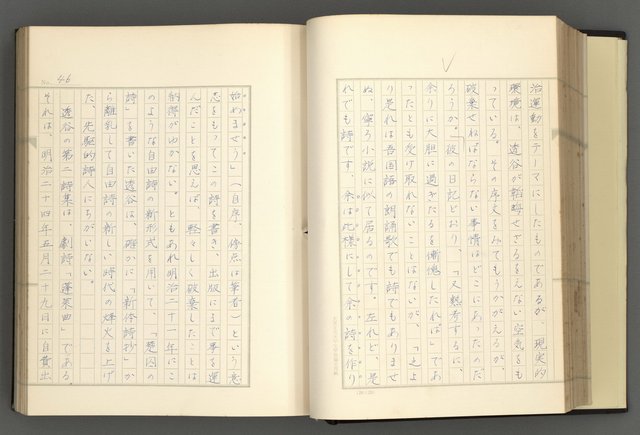 治運動をテーマにしたものであるが、現実的
環境は、透谷が韜晦せざるをえない空気をも
っている。その序文をみてもうかがえるが、
破棄せねばならない事情はどこにあったのだ
ろうか。「彼の日記どおり、「又熟考するに、
余りに大胆に過ぎたるを慚愧したれば」であ
ったとも受け取れないことはないが、「之よ
り是れは吾国語の朗誦歌でも詩でもありませ
ぬ、寧ろ小説に似て居るのです。左れど、是
れでも詩です、余は此様にして余の詩を作り
No. 46
始めませう」（自序、傍点は筆者）という意
志をもってこの詩を書き、出版にまで事を運
んだことを思えば、軽々しく破棄したことは
納得がゆかない。ともあれ明治二十一年にこ
のような自由詩の新形式を用いて、「楚囚の
詩」を書いた透谷は、確かに「新体詩抄」か
ら離乳して自由詩の新しい時代の烽火を上げ
た、先駆的詩人にちがいない。
透谷の第二詩集は、劇詩「蓬萊曲」である。
それは、明治二十四年五月二十九日に自費出